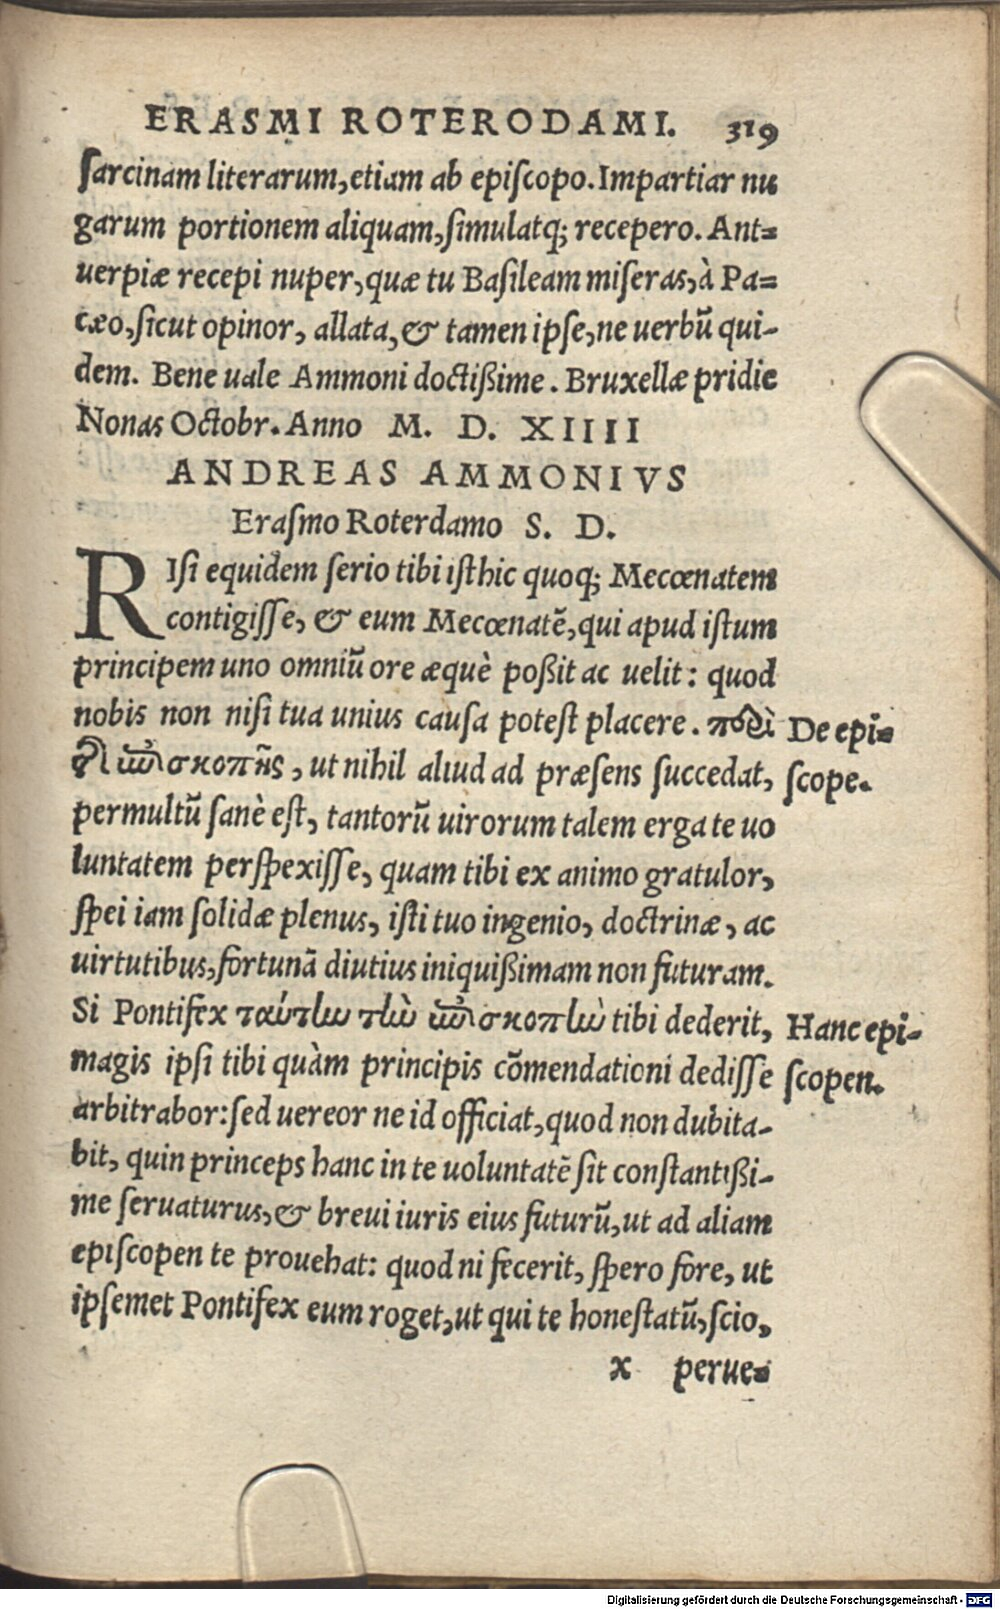 ERASMI ROTERODAMI. 319
ſarcinam literarum, etiam ab epiſcopo. Impartiar nu
garum portionem aliquam, ſimulatq; recepero. Ant=
uerpiæ recepi nuper, quæ tu Baſileam miſeras, à Pa=
cæo, ſicut opinor, allata, & tamen ipſe, ne uerbũ qui-
dem. Bene uale Ammoni doctißime. Bruxellæ pridie
Nonas Octobr. Anno M. D. XIIII
ANDREAS AMMONIVS
Eraſmo Roterdamo S. D.
RIſi equidem ſerio tibi iſthic quoq; Mecœnatem
contigiſſe, & eum Mecœnatẽ, qui apud iſtum
principem uno omniũ ore æquè poßit ac uelit: quod
nobis non niſi tua unius cauſa poteſt placere. περὶ
De epi=
τῆς ἐπισκοπῆς, ut nihil aliud ad præſens ſuccedat,
ſcope.
permultũ ſanè eſt, tantorũ uirorum talem erga te uo
luntatem perſpexiſſe, quam tibi ex animo gratulor,
ſpei iam ſolidæ plenus, iſti tuo ingenio, doctrinæ, ac
uirtutibus, fortunã diutius iniquißimam non futuram.
Si Pontifex ταύτην τὴν ἐπισκοπὴν tibi dederit,
Hanc epi-
magis ipſi tibi quàm principis cõmendationi dediſſe
ſcopen.
arbitrabor: ſed uereor ne id officiat, quod non dubita-
bit, quin princeps hanc in te uoluntatẽ ſit conſtantißi-
me ſeruaturus, & breui iuris eius futurũ, ut ad aliam
epiſcopen te prouehat: quod ni fecerit, ſpero fore, ut
ipſemet Pontifex eum roget, ut qui te honeſtatũ, ſcio,
x perue=
Digitalisierung gefördert durch die Deutsche Forschungsgemeinschaft - DFG